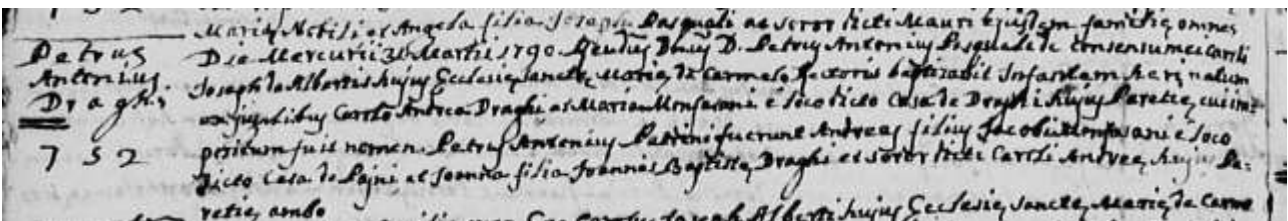 Maria Nobili et Angela filia Joseph Pasquali ac soror dicti Mauri ejusdem omnes
Petrus Antonius Draghi
752
Die Mercurii 31 Martii 1790. D. Petrus Antonius Pasquali de consensu mei Caroli
Joseph de Albertis hujus Ecclesiæ sanctæ Mariæ de Carmelo Rectoris baptizavit Infantem heri natum
ex jugalibus Carolo Andrea Draghi et Maria Monfasani è loco dicto Casa de Draghi hujus Parœtiæ, cui im=
positum fuit nomen Petrus Antonius Patrini fuerunt Andreas filius Jacobi Monfasani è loco
dicto Casa de Pajni et Joanna filia Joannis Baptistæ Draghi et soror dicti Caroli Andreæ, hujus Pa=
retiæ, ambo
Joseph Alberti hujus Ecclesiæ sanctæ Mariæ de Carme